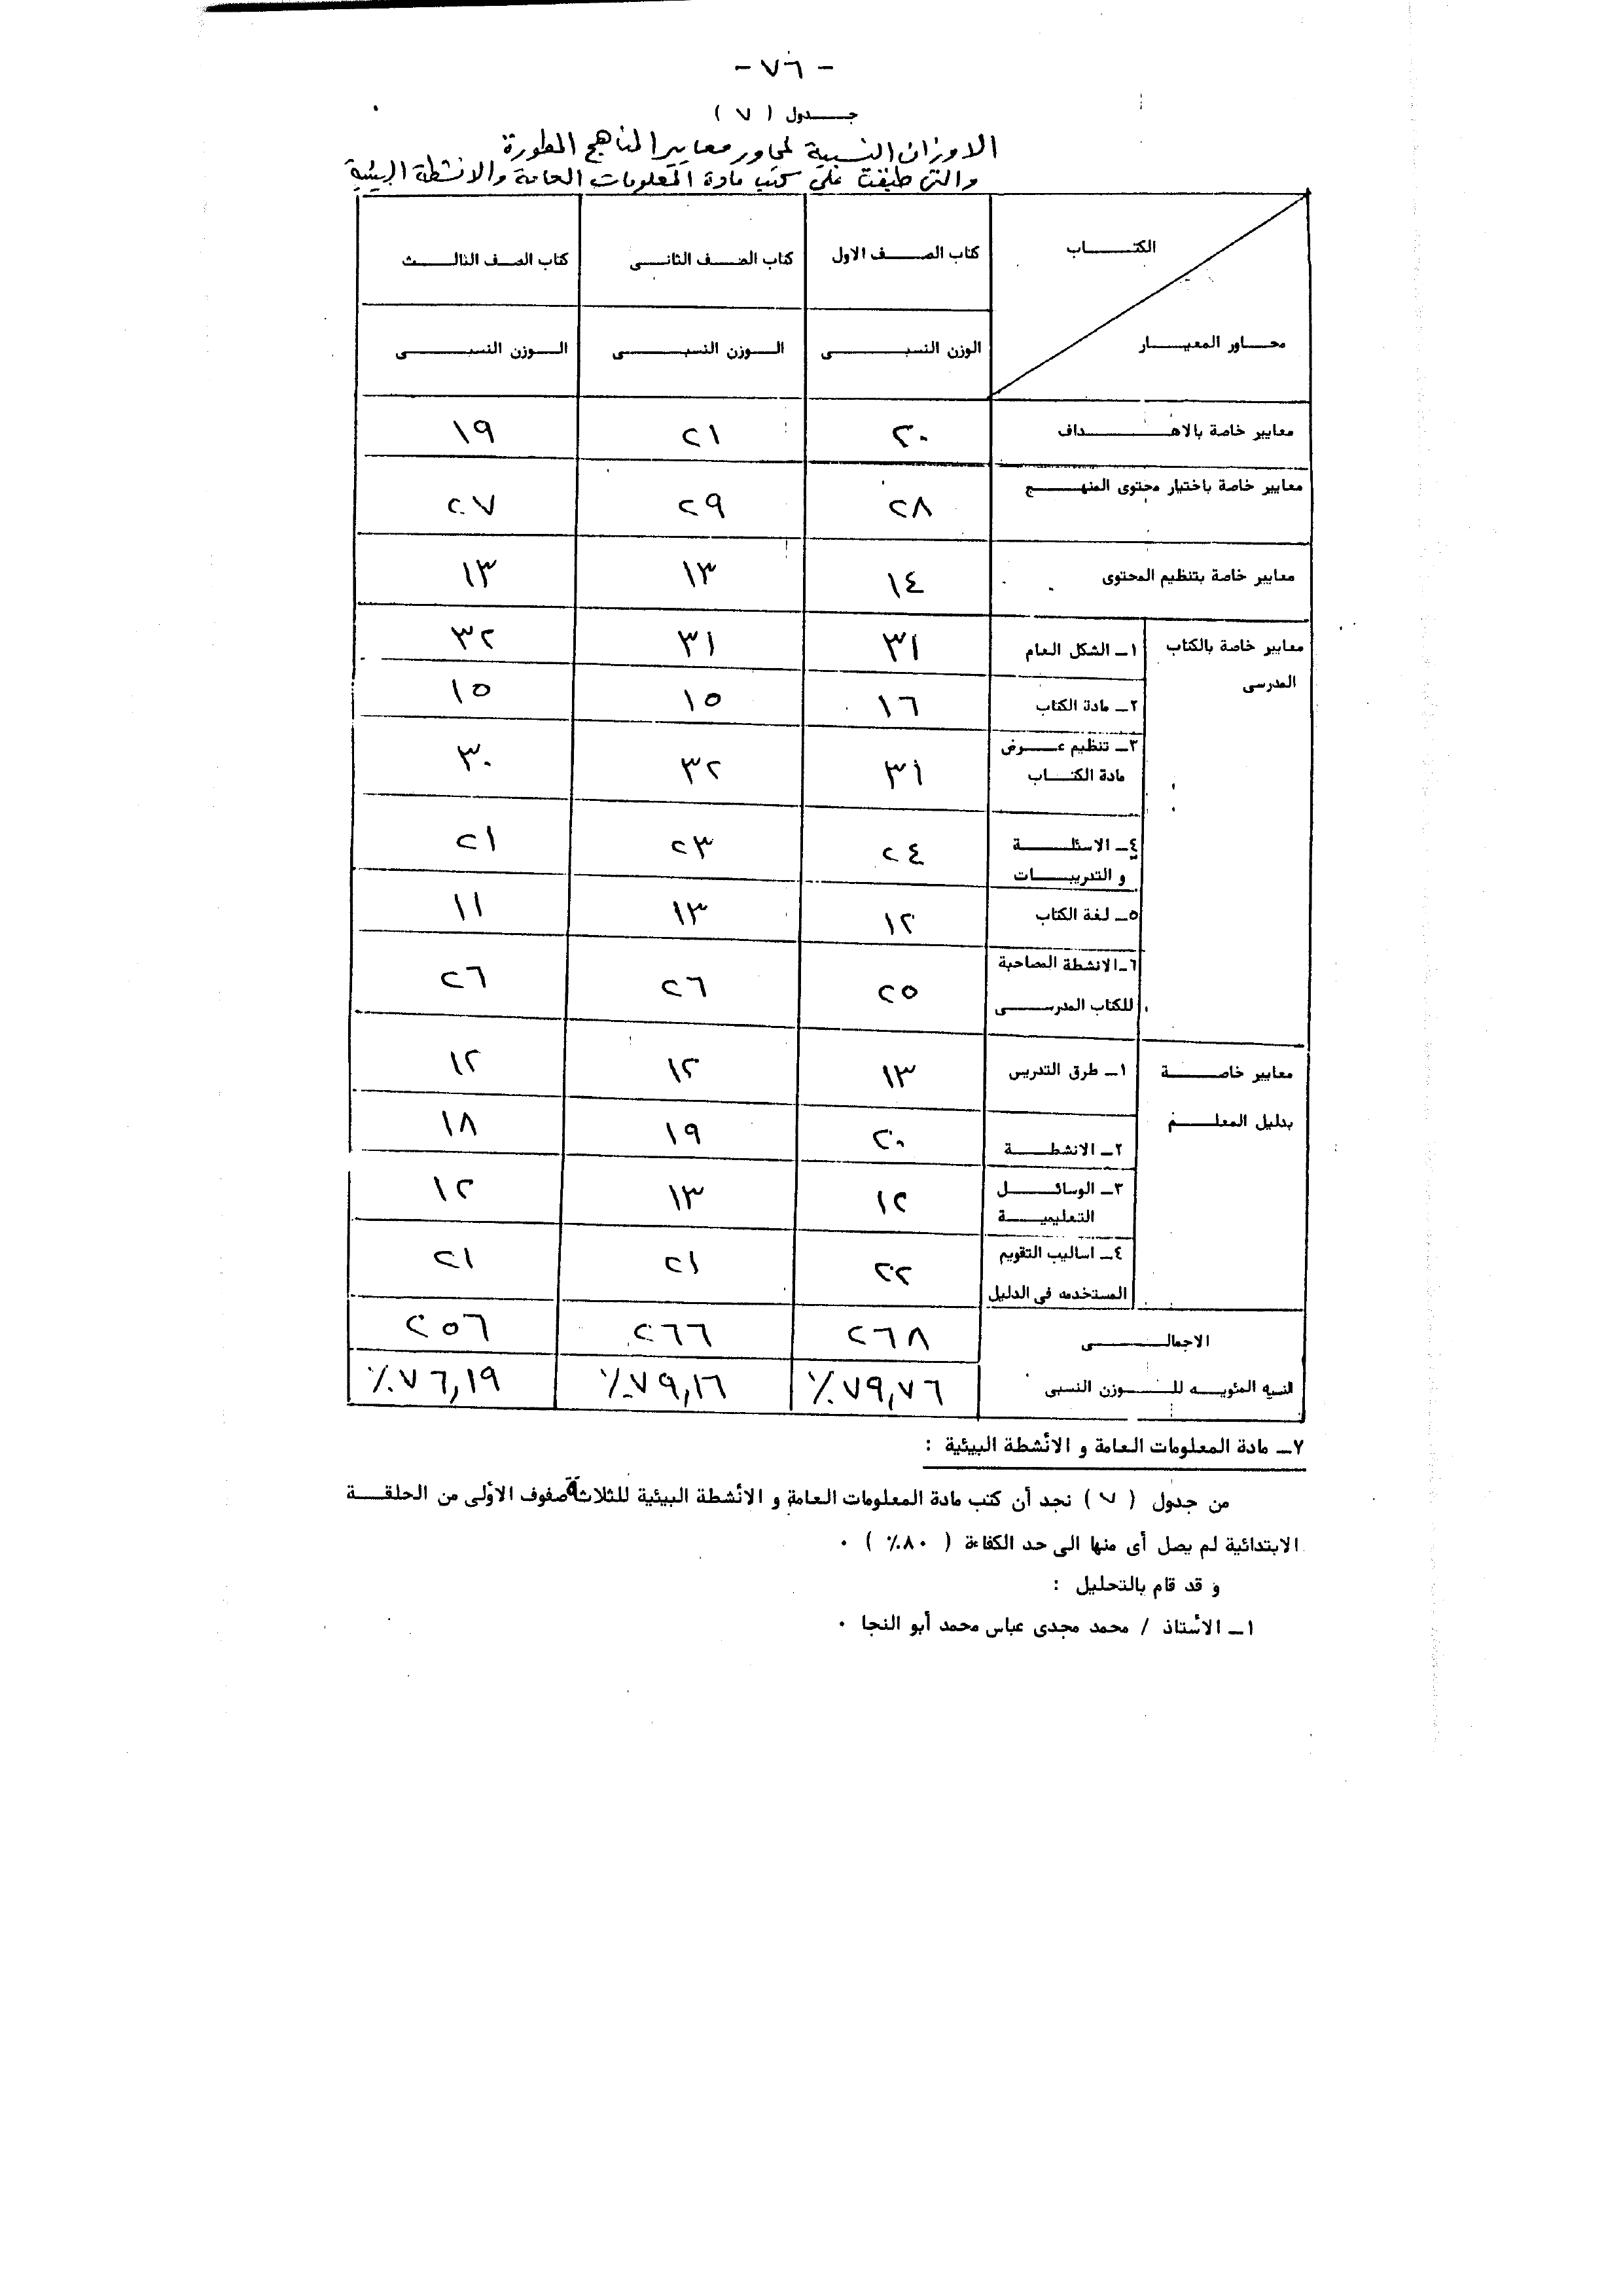 - ٧٦ -
جدول ( ٧ )
الاوزان النسبية لمحاور معايير المناهج المطورة
والتى طبقت على كتب مادة المعلومات العامة والانشطة البيئية
الكتاب
محاور المعيار
كتاب الصف الاول
كتاب الصف الثانى
كتاب الصف الثالث
الوزن النسبى
الوزن النسبى
الوزن النسبى
معايير خاصة بالاهداف ٢٠ ٢١ ١٩
معايير خاصة باختيار محتوى المنهج ٢٨ ٢٩ ٢٧
معايير خاصة بتنظيم المحتوى ١٤ ١٣ ١٣
معايير خاصة بالكتاب
المدرسى
١ـ الشكل العام ٣١ ٣١ ٣٢
٢ـ مادة الكتاب ١٦ ١٥ ١٥
٣ـ تنظيم عرض
مادة الكتاب ٣١ ٣٢ ٣٠
٤ـ الاسئلة
و التدريبات ٢٤ ٢٣ ٢١
٥ـ لغة الكتاب ١٢ ١٣ ١١
٦ـ الانشطة المصاحبة
للكتاب المدرسى ٢٥ ٢٦ ٢٦
معايير خاصة
بدليل المعلم
١ـ طرق التدريس ١٣ ١٢ ١٢
٢ـ الانشطة ٢٠ ١٩ ١٨
٣ـ الوسائل
التعليمية ١٢ ١٣ ١٢
٤ـ اساليب التقويم
المستخدمه فى الدليل ٢٢ ٢١ ٢١
الاجمالى ٢٦٨ ٢٦٦ ٢٥٦
النسبه المئويه للوزن النسبى ٧٩,٧٦٪ ٧٩,١٦٪ ٧٦,١٩٪
٧ـ مادة المعلومات العامة و الأنشطة البيئية :
من جدول ( ٧ ) نجد أن كتب مادة المعلومات العامة و الأنشطة البيئية للثلاثة صفوف الأولى من الحلقة
الابتدائية لم يصل أى منها الى حد الكفاءة ( ٨٠٪ ) ٠
و قد قام بالتحليل :
١ـ الأستاذ / محمد مجدى عباس محمد أبو النجا ٠